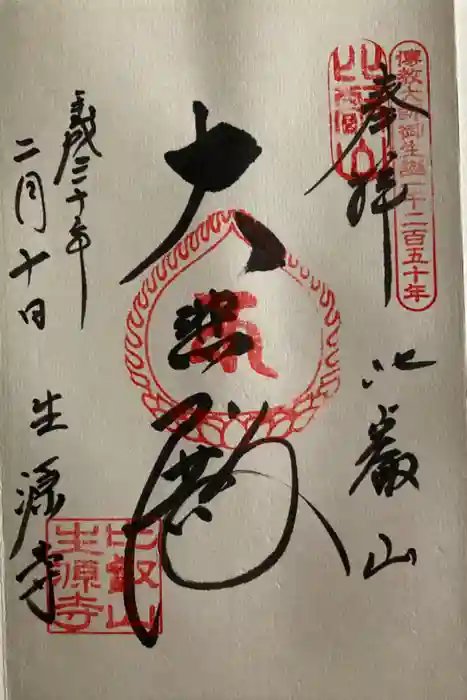 傳教大師御生誕一千二百五十年
奉拝
比叡山
大悲殿
平成三十年
二月十日
生源寺
比叡山
生源寺